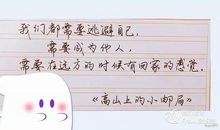 我们都需要逃避自己，
需要成为他人，
需要在远方的时候有回家的感觉。
《高山上的小邮局》